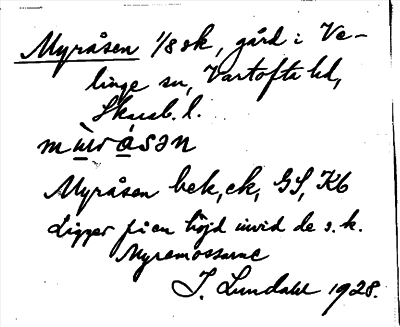 Myråsen 1/8 sk, gård i Ve-
linge sn, Vartofta hd,
Skarab. l.
Myråsen bek, ek, GS, Kb
Ligger på en höjd invid de s.k.
Myremossarne
J. Lundahl 1928.